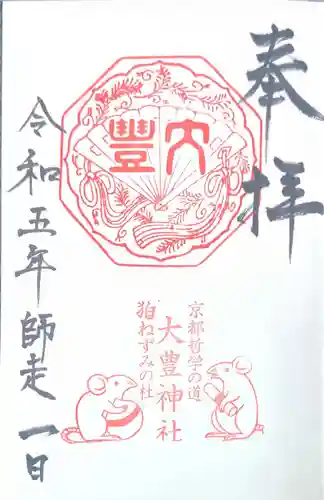 奉拝
大豊
京都哲学の道
大豊神社
狛ねずみの社
令和五年師走一日